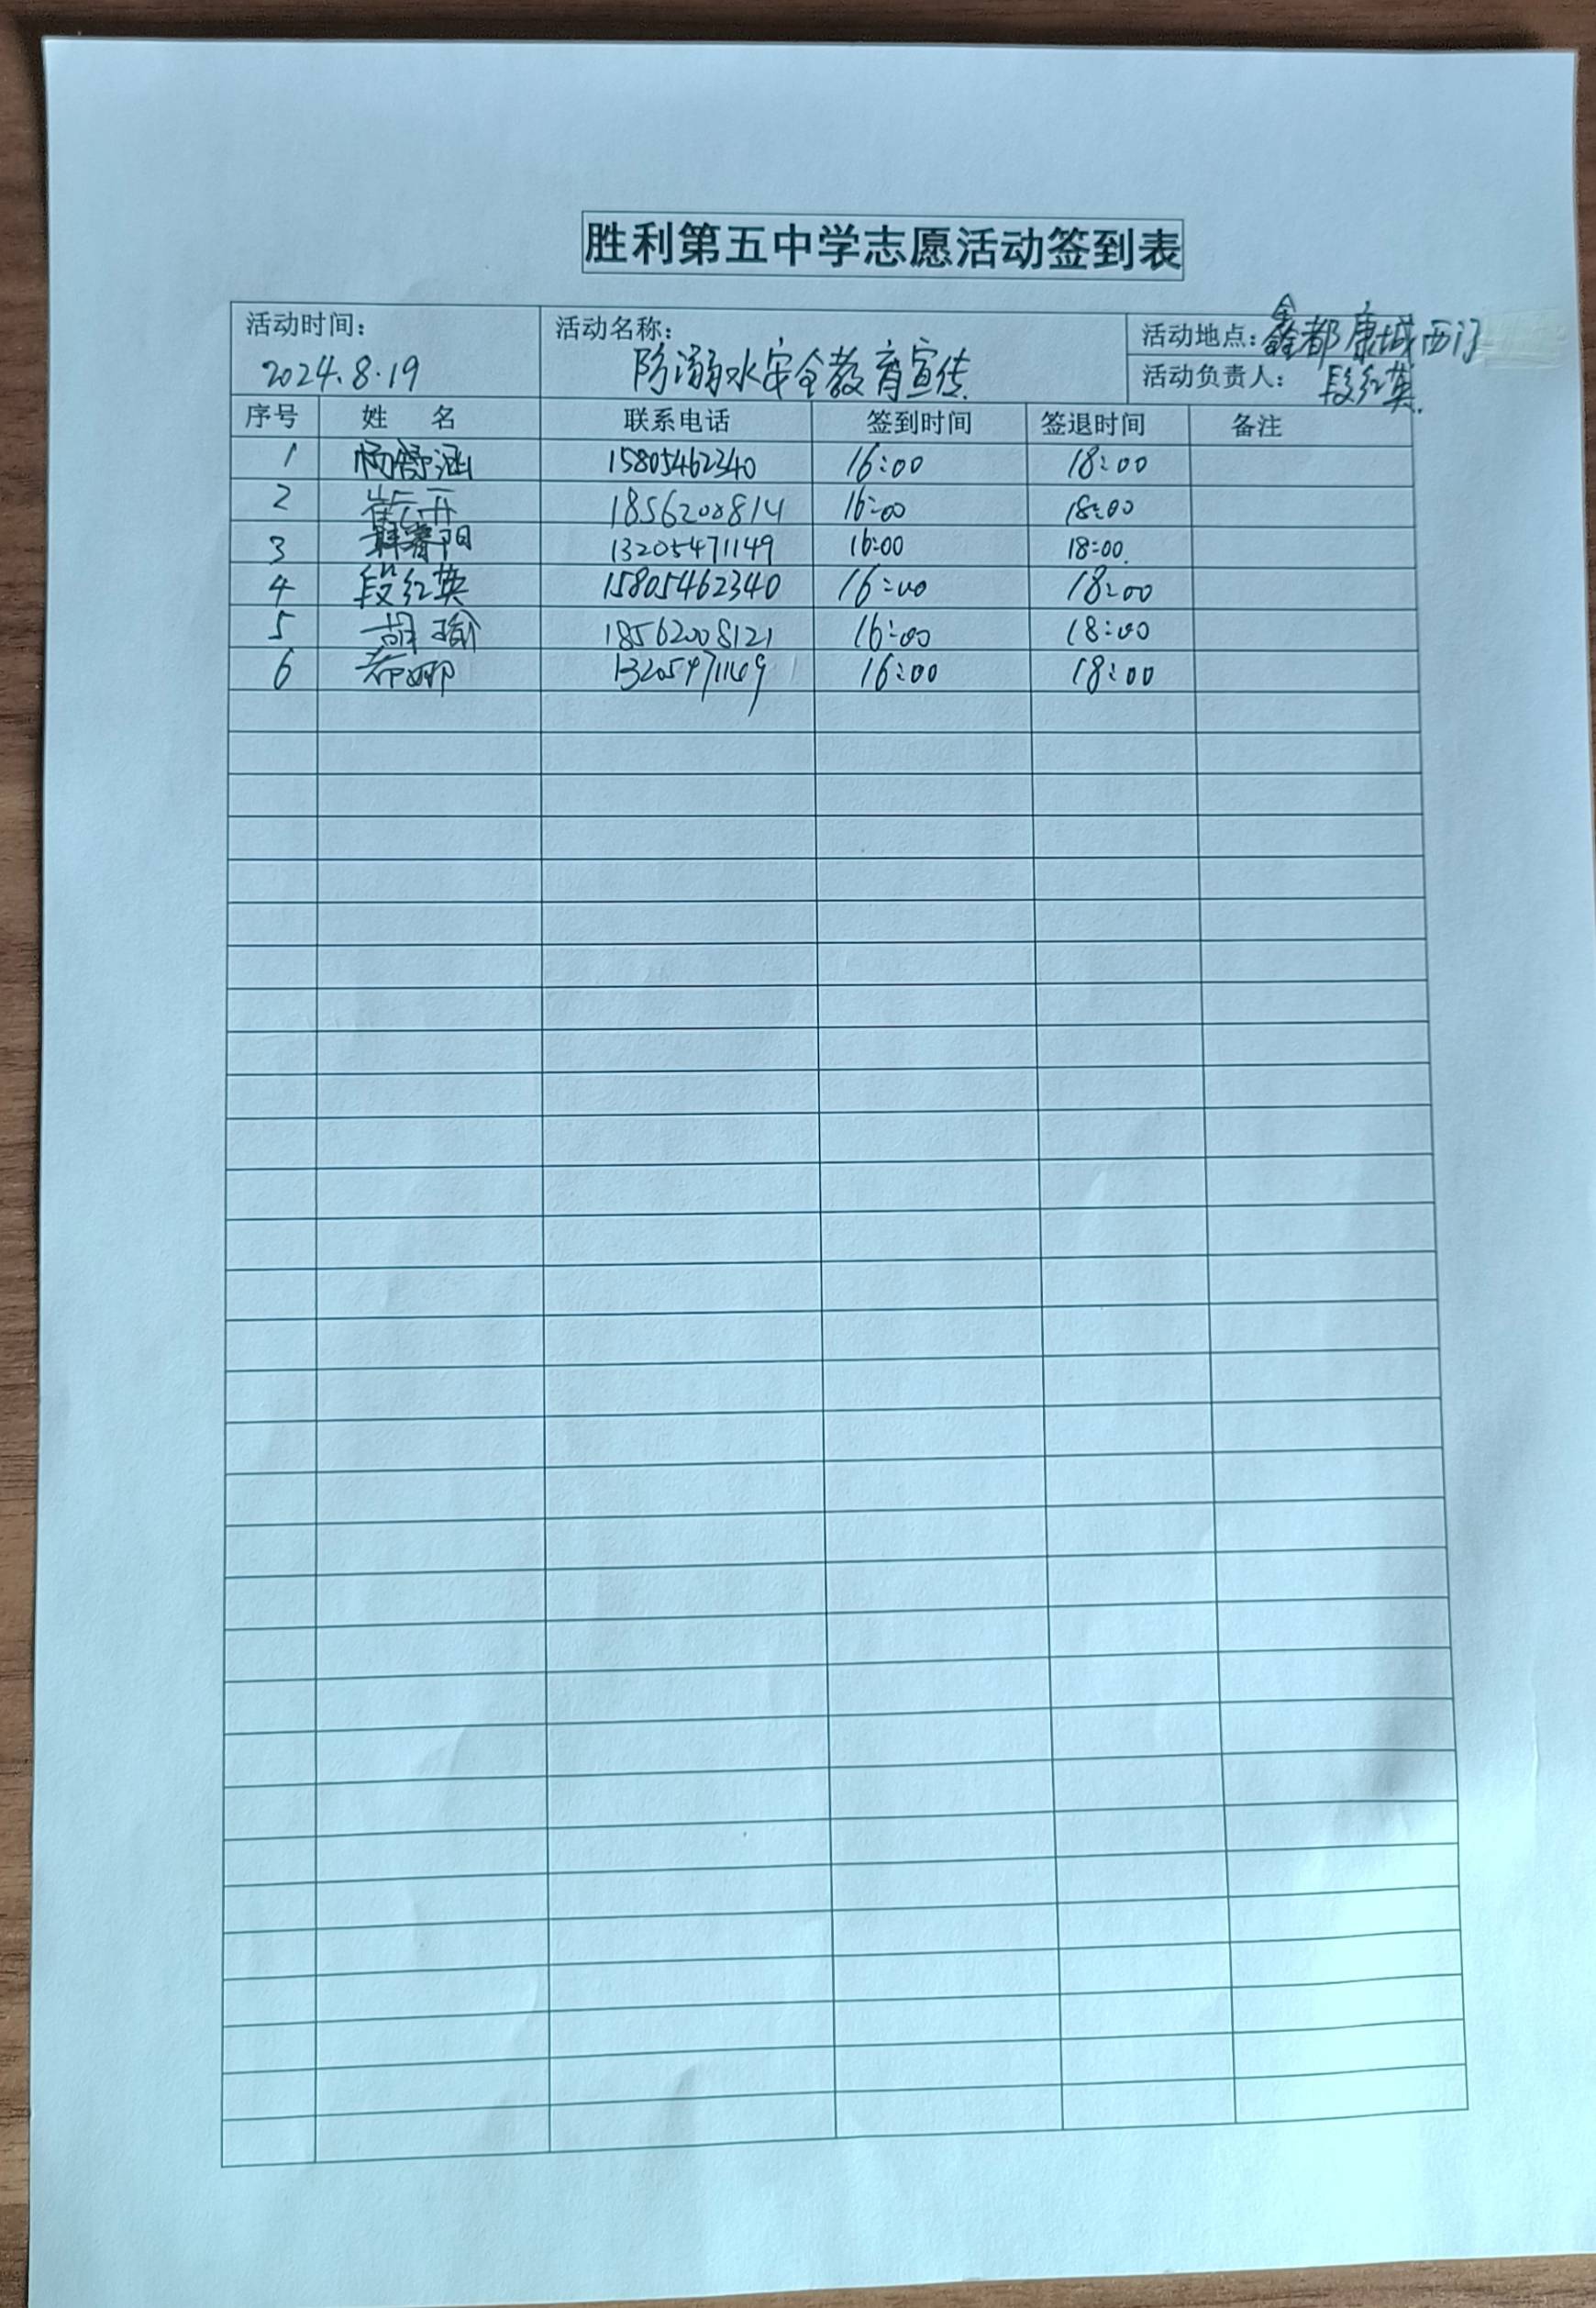 胜利第五中学志愿活动签到表
活动时间： 活动名称： 活动地点：鑫都康城西门
2024.8.19 防溺水安全教育宣传 活动负责人：段红英
序号 姓 名 联系电话 签到时间 签退时间 备注
1 杨舒涵 15805462340 16:00 18:00
2 16:00 18:00
3 阳 13205471149 16:00 18:00
4 段红英 15805462340 16:00 18:00
5 胡瑜 18562008121 16:00 18:00
6 娜 16:00 18:00